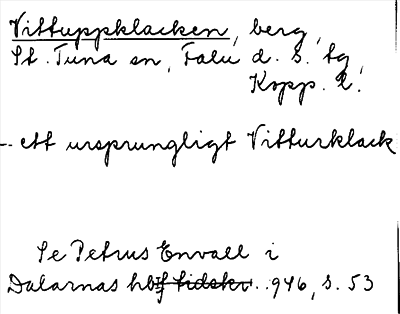 Vittuppklacken, berg,
St. Tuna sn, Falu d. s. tg,
Kopp. l.
-- ett ursprungligt Vitturklack
Se Petrus Envall i
Dalarnas hbf tidskr. 1946, s. 53